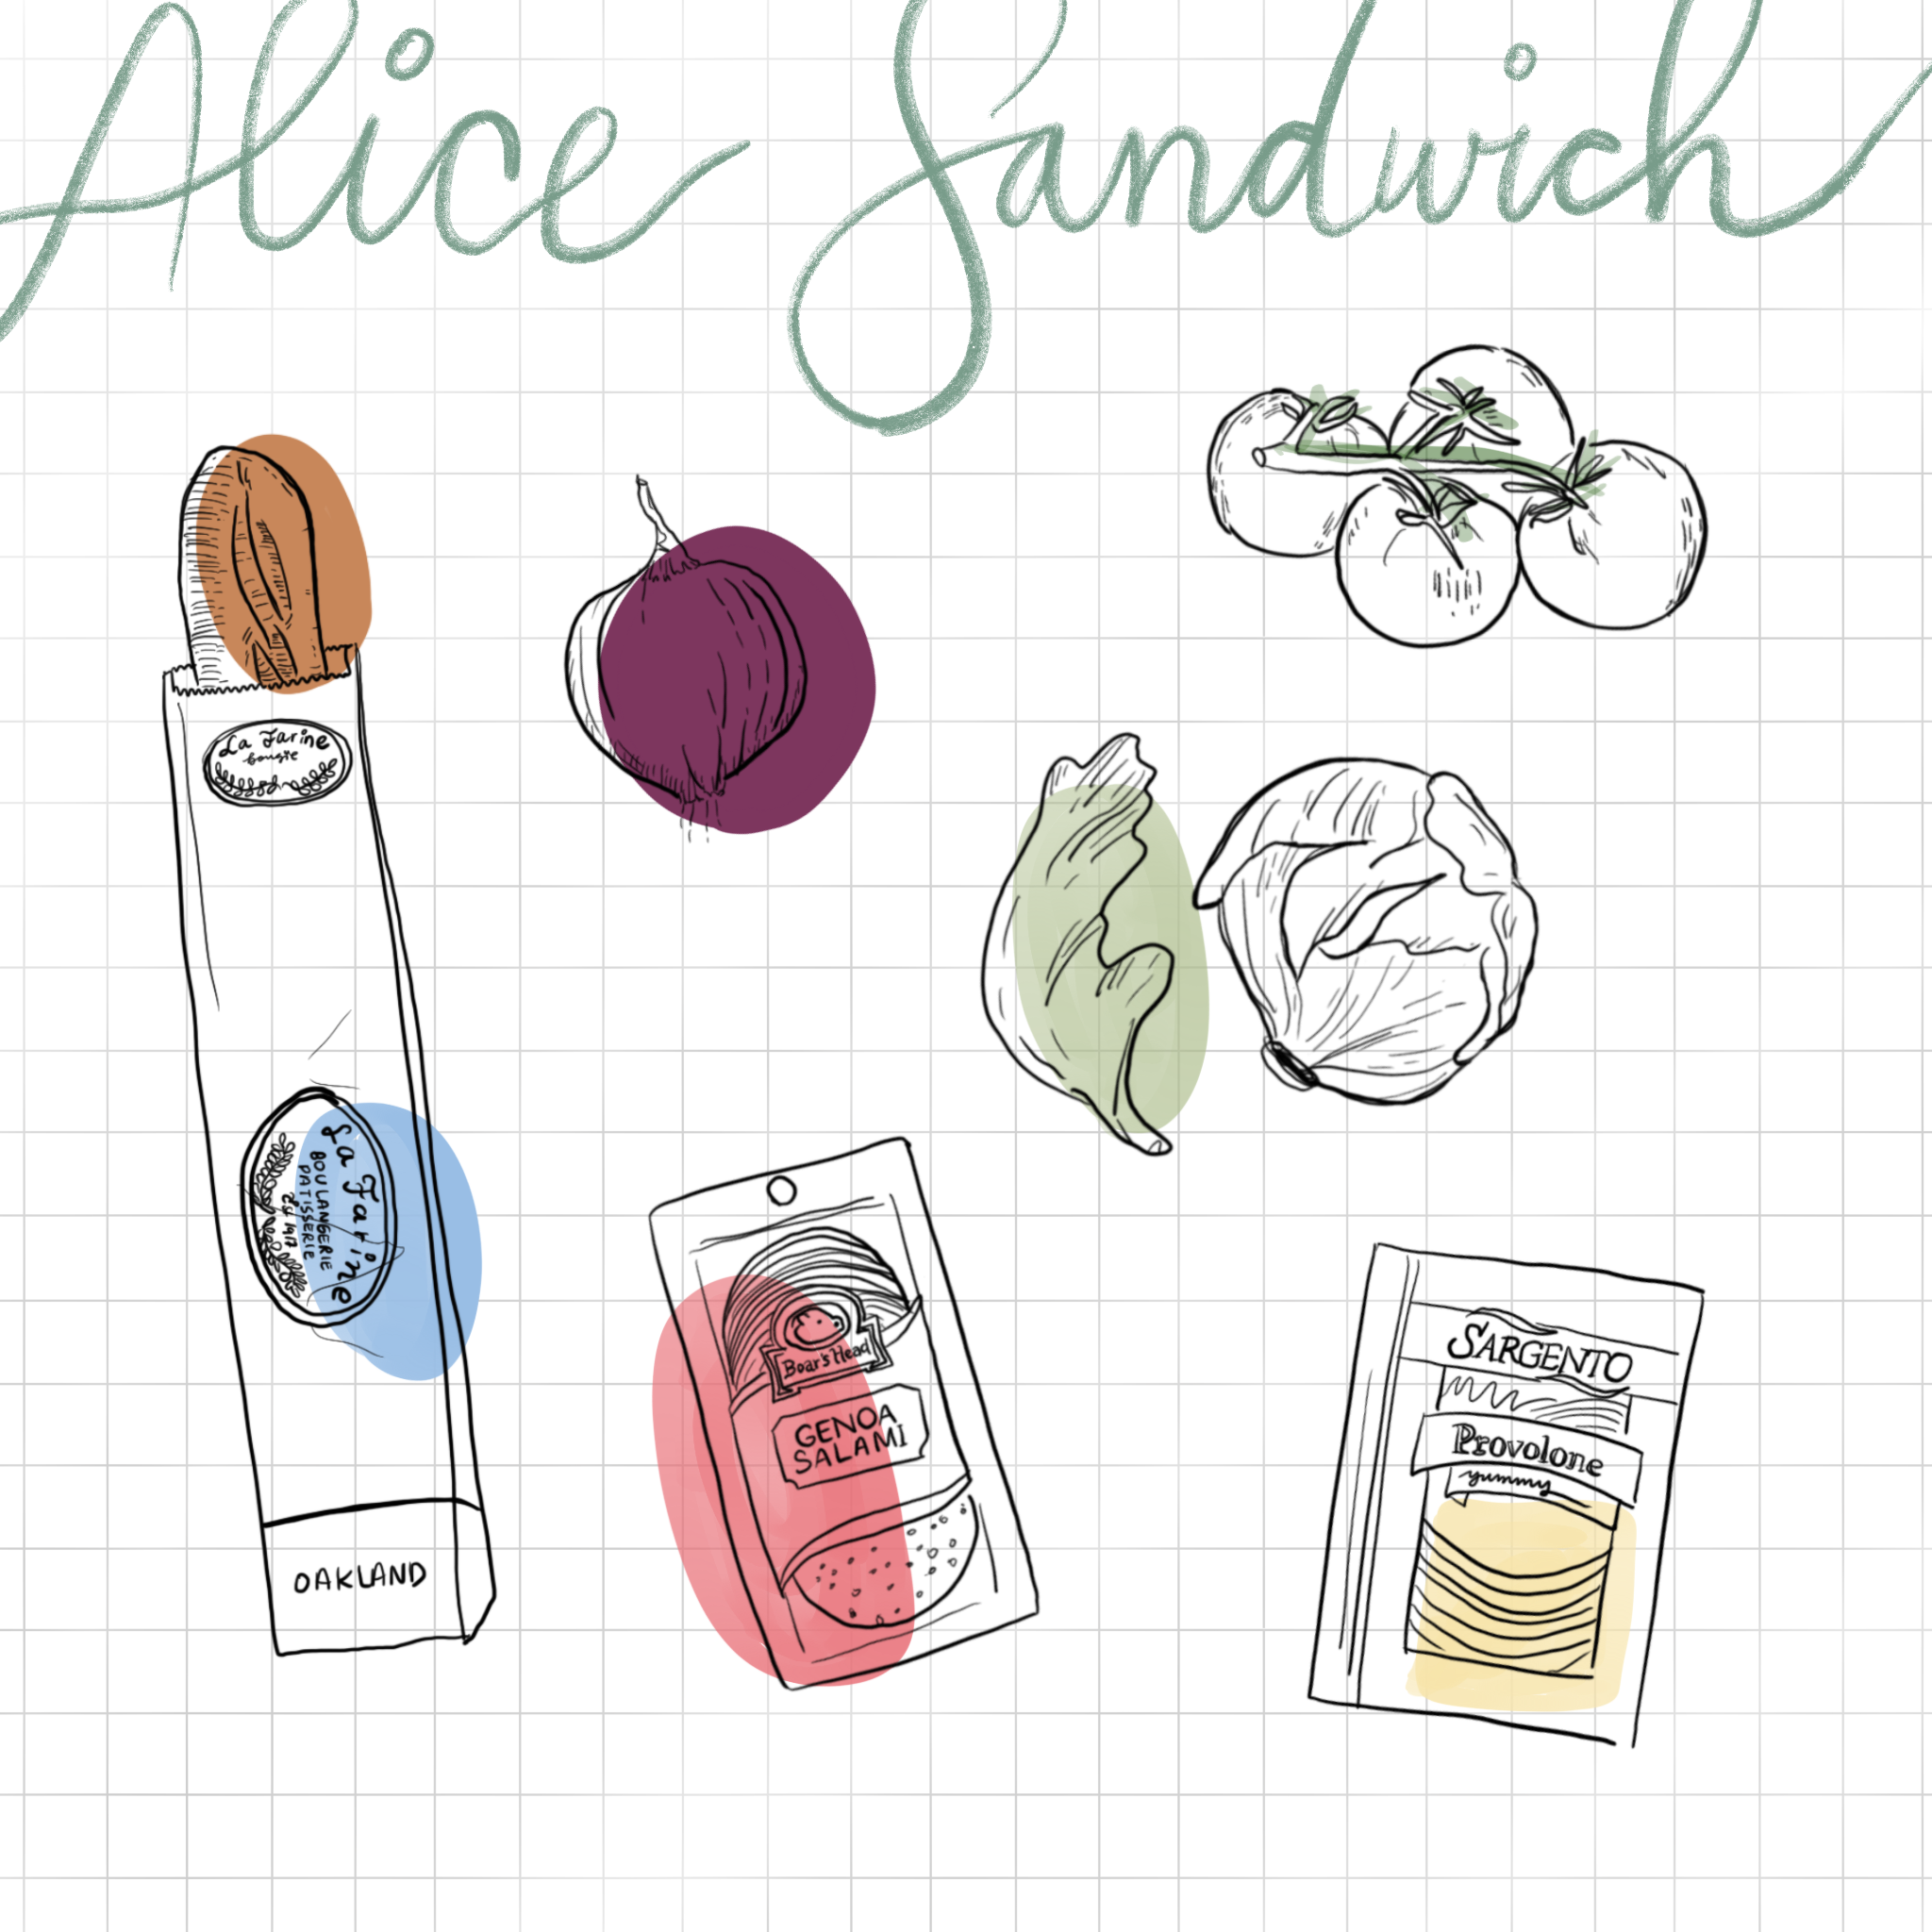 Alice Sandwich
La Farine
bougie
La Farine
BOULANGERIE
PATISSERIE
OAKLAND
Boar's Head
GENOA
SALAMI
SARGENTO
Provolone
yummy